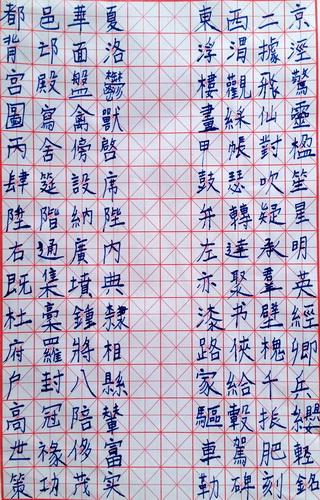 都邑華夏 東西二京
背邙面洛 浮渭據涇
宮殿盤鬱 樓觀飛驚
圖寫禽獸 畫綵仙靈
丙舍傍啓 甲帳對楹
肆筵設席 鼓瑟吹笙
陞階納陛 弁轉疑星
右通廣內 左達承明
既集墳典 亦聚羣英
杜稾鍾隸 漆书壁經
府羅將相 路俠槐卿
户封八縣 家給千兵
高冠陪輦 驅轂振纓
世祿侈富 車駕肥輕
策功茂实 勒碑刻銘